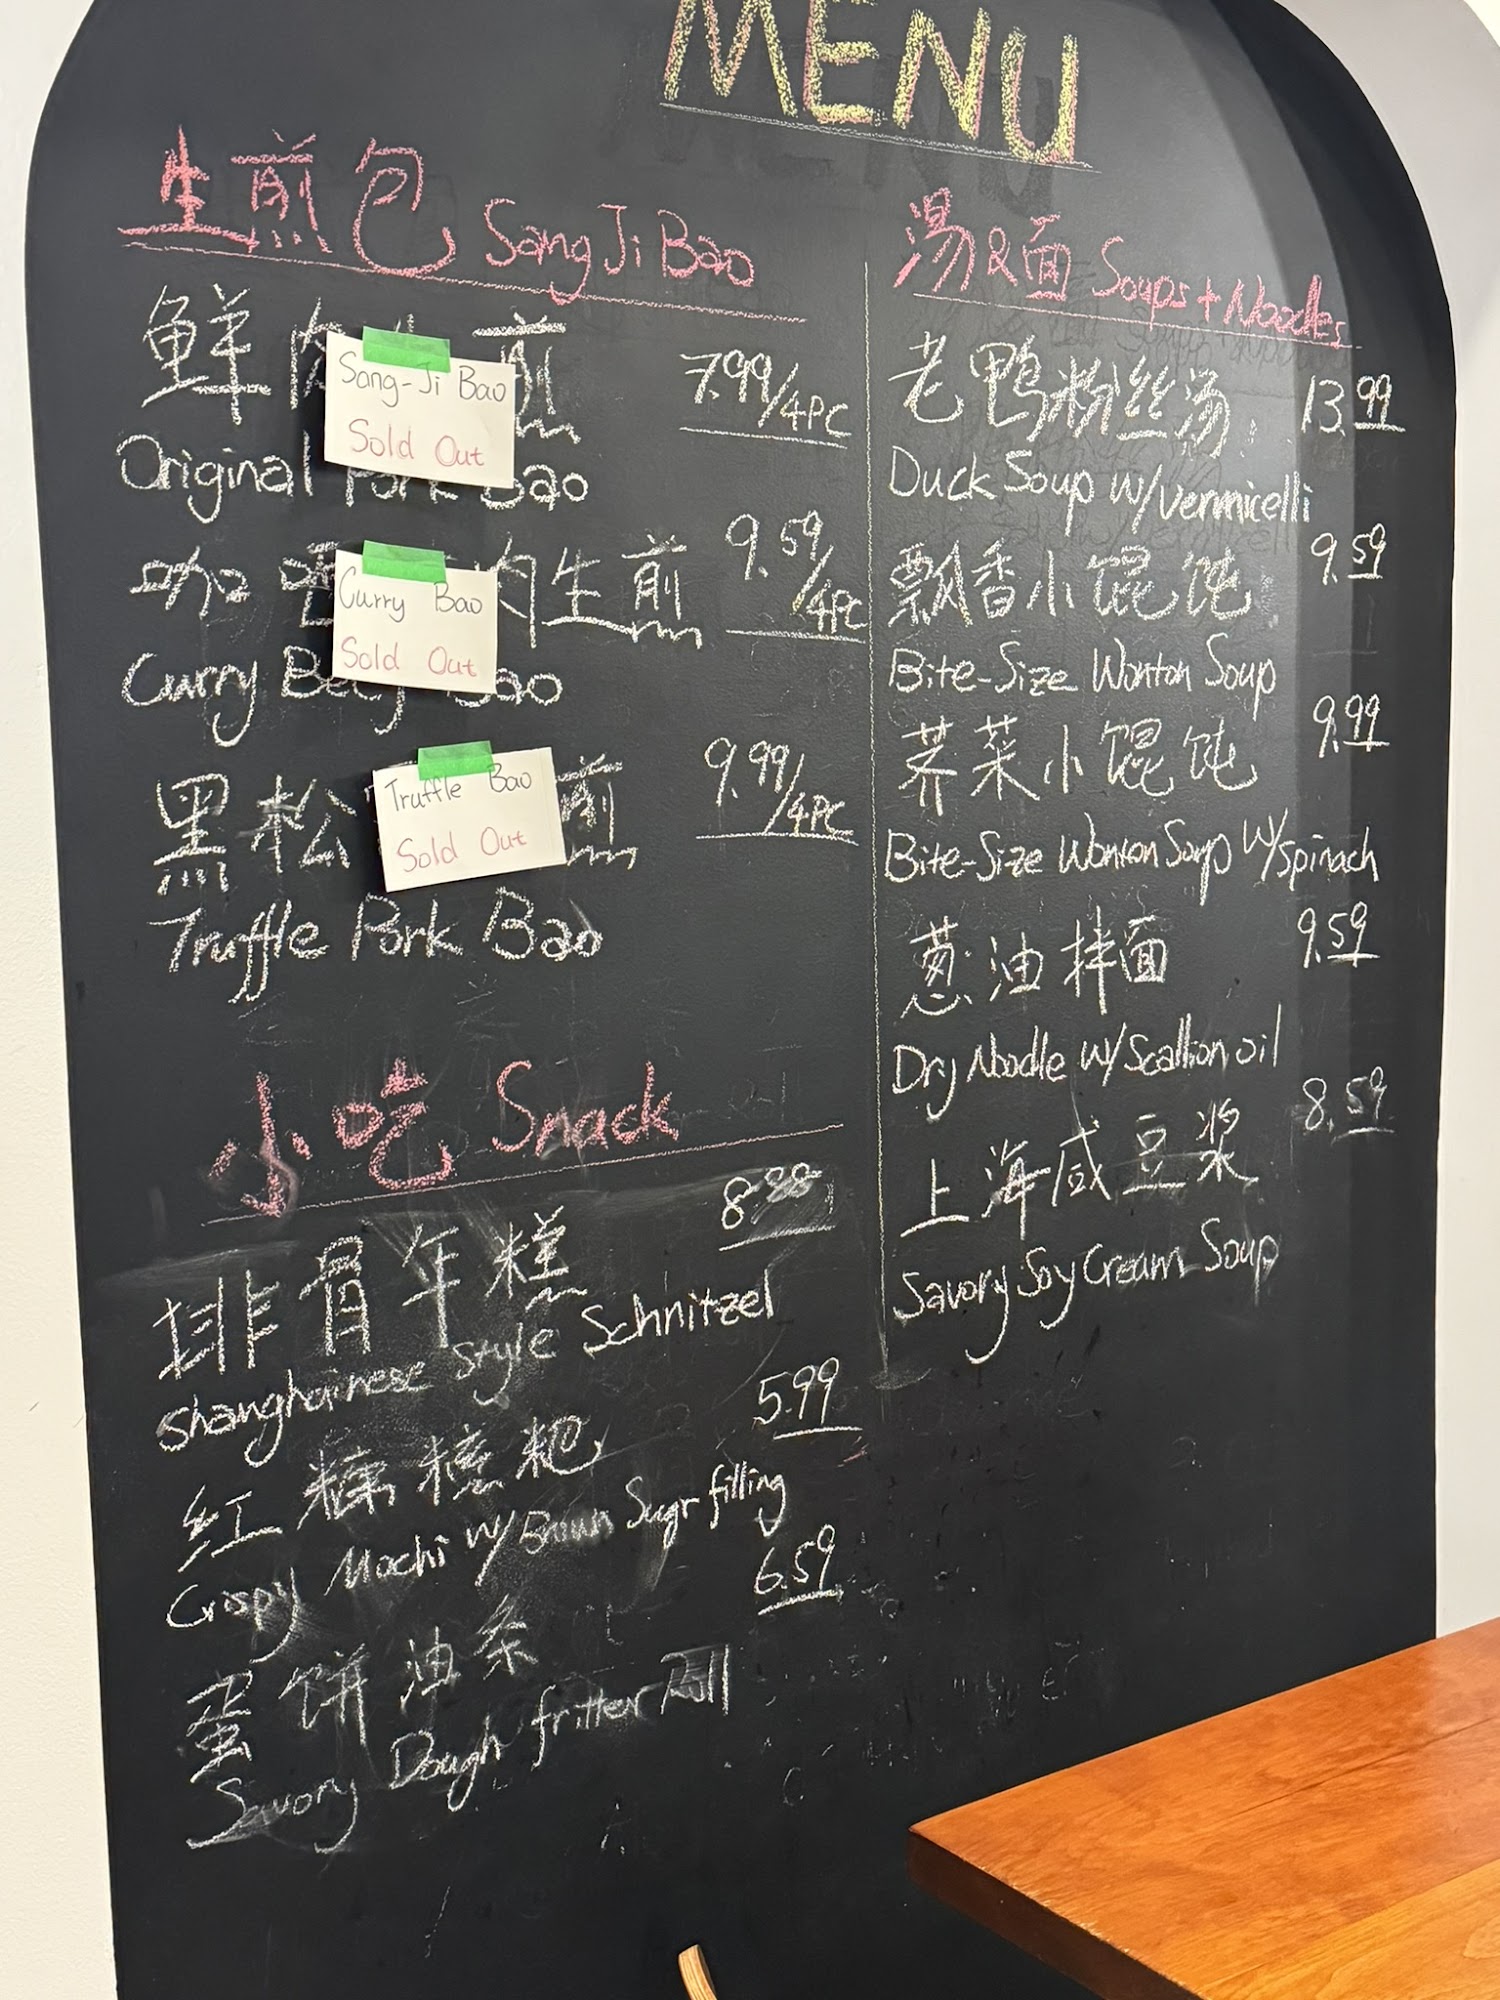 MENU
生煎包 Sang Ji Bao
鲜肉 煎
7.99/4PC
Sang-Ji Bao
Sold Out
Original Pork Bao
咖 肉生煎
9.59/4PC
Curry Bao
Sold Out
Curry Beef Bao
黑松 煎
9.99/4PC
Truffle Bao
Sold Out
Truffle Pork Bao
小吃 Snack
排骨年糕
8.99
Shanghainese Style Schnitzel
红糖糍粑
5.99
Crispy Mochi w/ Brown Sugr filling
蛋饼油条
6.59
Savory Dough fritter Roll
湯&面 Soups + Noodles
老鸭粉丝汤
13.99
Duck Soup w/ vermicelli
飘香小馄饨
9.59
Bite-Size Wonton Soup
荠菜小馄饨
9.99
Bite-Size Wonton Soup w/ spinach
葱油拌面
9.59
Dry Noodle w/ Scallion oil
上海咸豆浆
8.59
Savory Soy Cream Soup